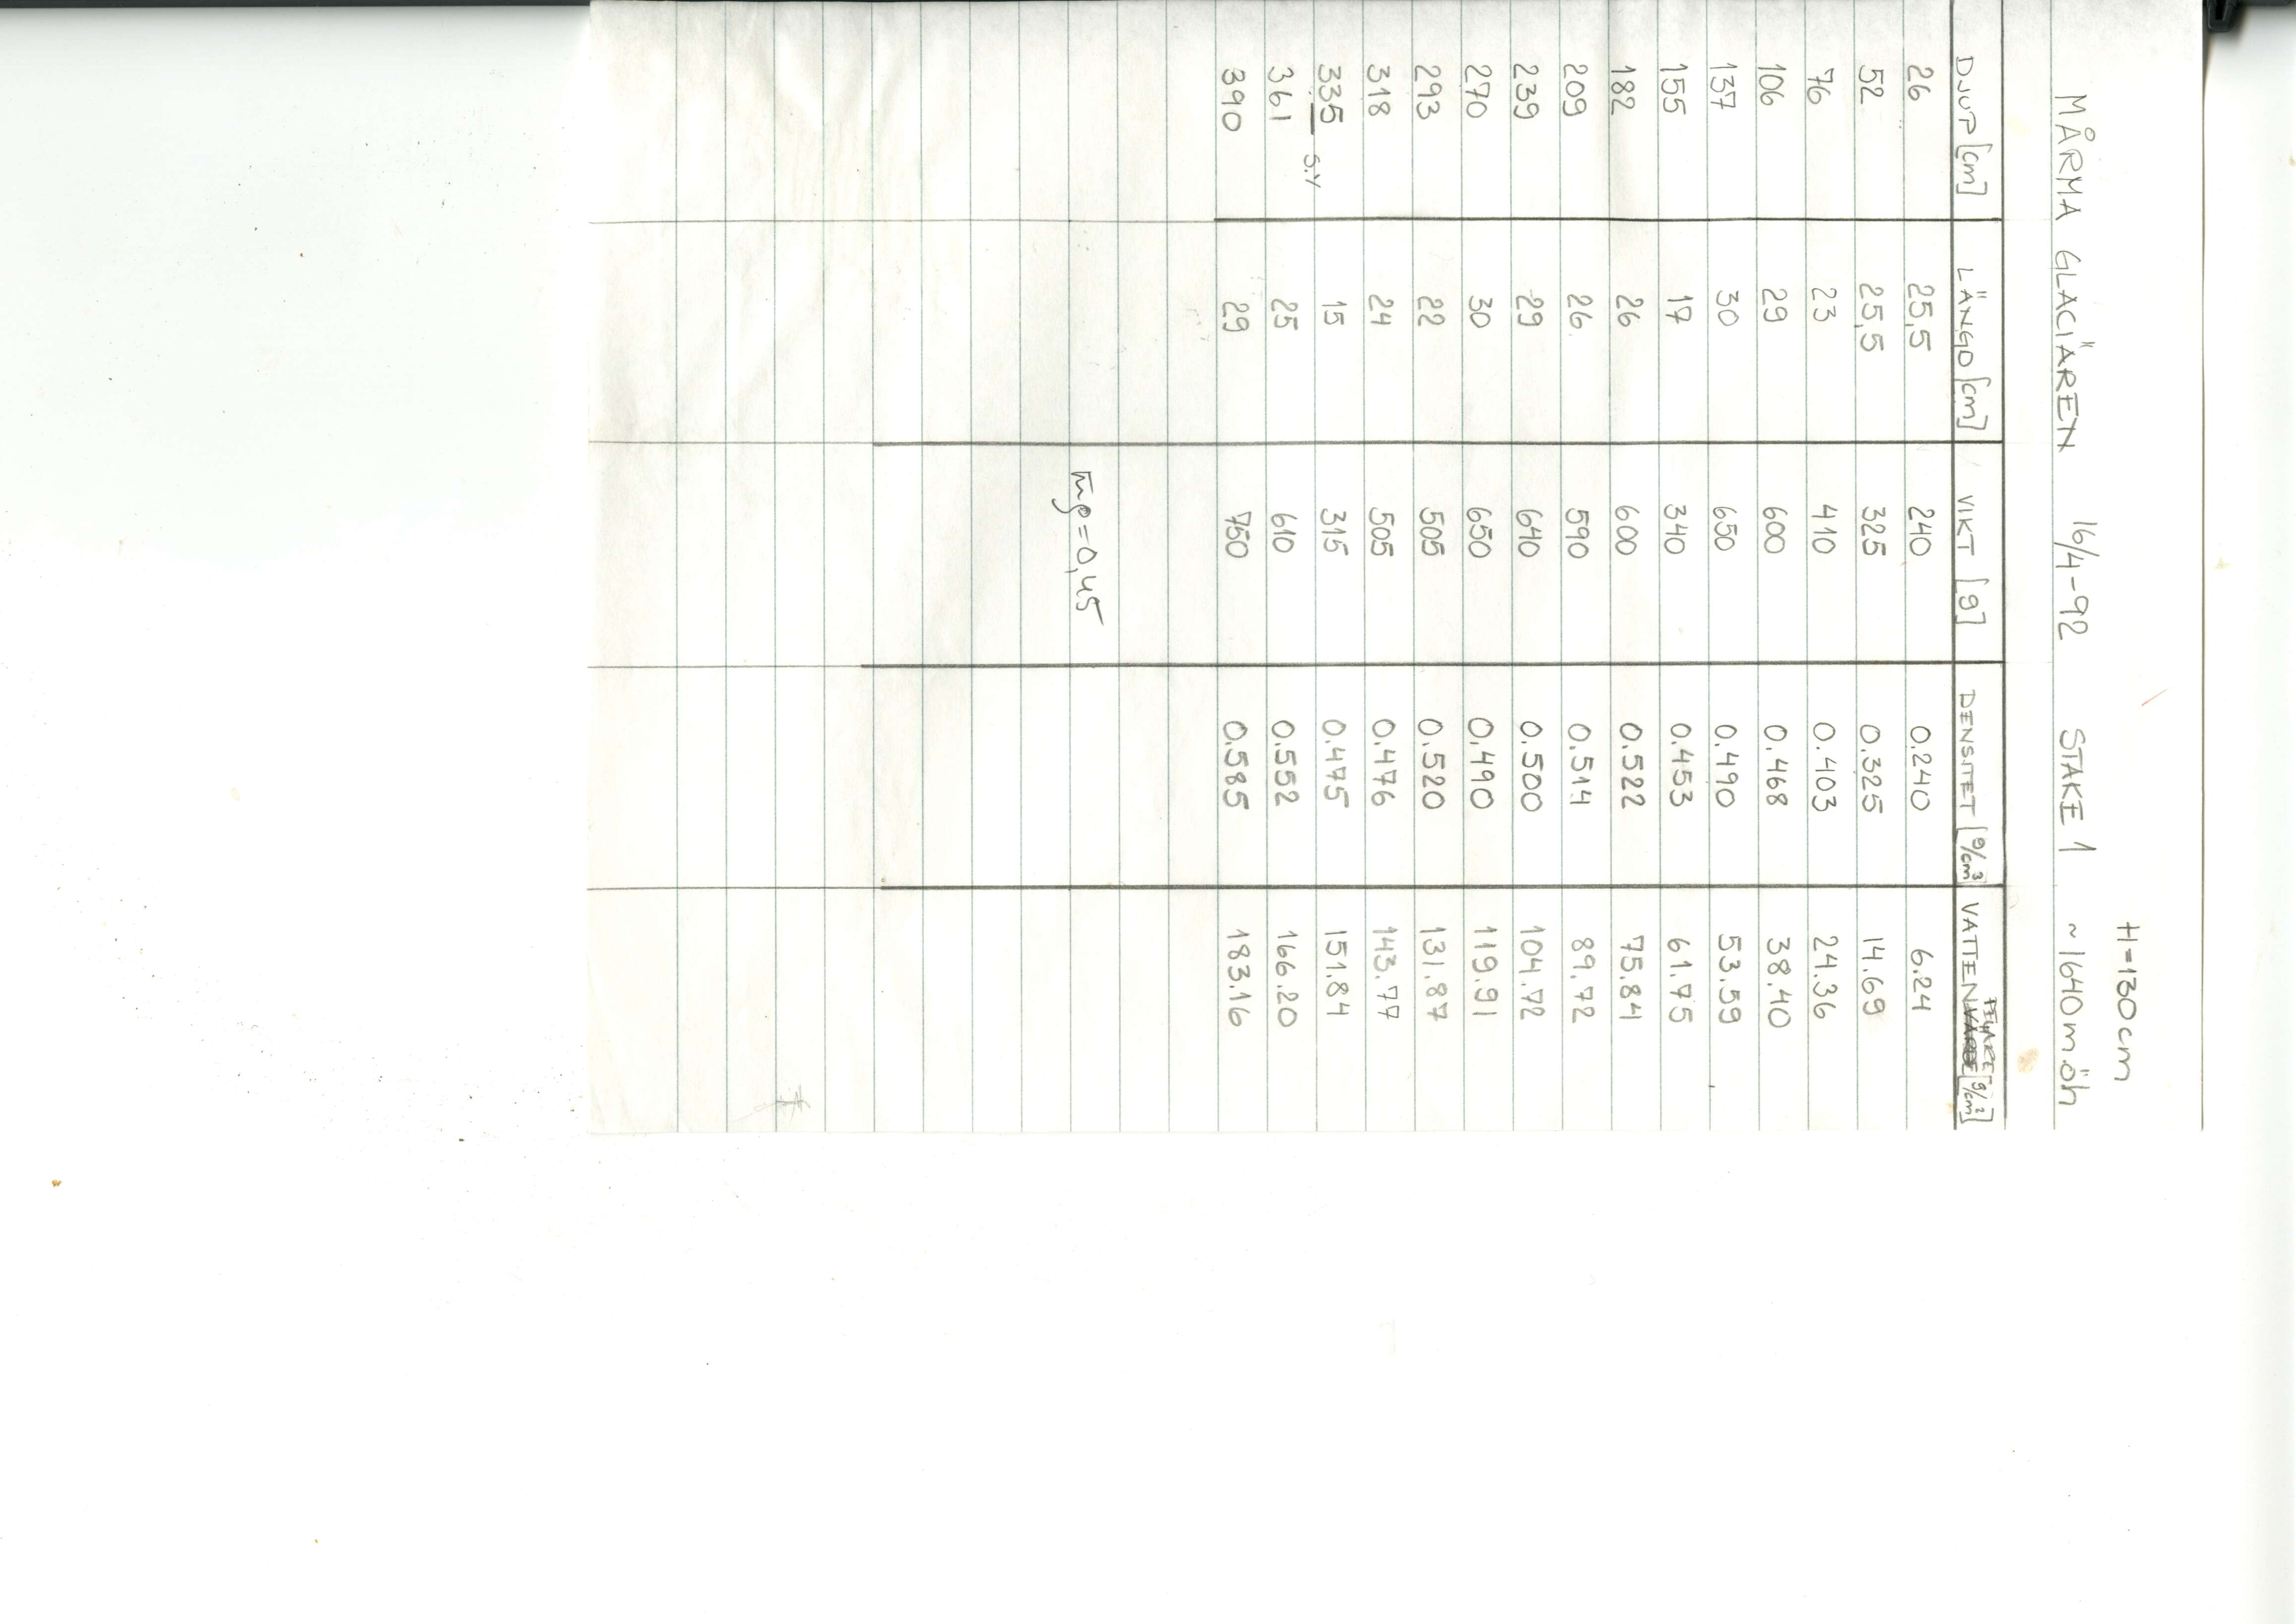 H=130cm
MÅRMA GLACIÄREN 16/4-92 STAKE 1 ~1640m.öh
DJUP [cm] LÄNGD [cm] VIKT [g] DENSITET [g/cm³] VATTENPELARE [g/cm²]
26 25,5 240 0.240 6.24
52 25,5 325 0.325 14.69
76 23 410 0.403 24.36
106 29 600 0.468 38.40
137 30 650 0.490 53.59
155 17 340 0.453 61.75
182 26 600 0.522 75.84
209 26 590 0.514 89.72
239 29 640 0.500 104.72
270 30 650 0.490 119.91
293 22 505 0.520 131.87
318 24 505 0.476 143.77
335 S.Y 15 315 0.475 151.84
361 25 610 0.552 166.20
390 29 750 0.585 183.16
=0,45